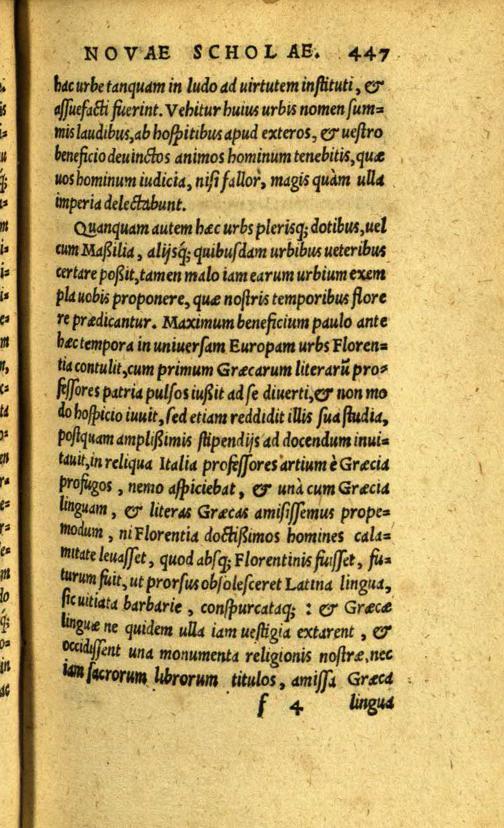 NOVAE SCHOLAE. 447
hac urbe tanquam in ludo ad uirtutem instituti, &
assuefacti fuerint. Vehitur huius urbis nomen sum=
mis laudibus, ab hospitibus apud exteros, & uestro
beneficio deuinctos animos hominum tenebitis, quæ
uos hominum iudicia, nisi fallor, magis quàm ulla
imperia delectabunt.
Quanquam autem hæc urbs plerisq; dotibus, uel
cum Maßilia, alijsq́; quibusdam urbibus ueteribus
certare poßit, tamen malo iam earum urbium exem
pla uobis proponere, quæ nostris temporibus flore
re prædicantur. Maximum beneficium paulo ante
hæc tempora in uniuersam Europam urbs Floren=
tia contulit, cum primum Græcarum literarū pro=
fessores patria pulsos iußit ad se diuerti, & non mo
do hospicio iuuit, sed etiam reddidit illis sua studia,
postquam amplißimis stipendijs ad docendum inui=
tauit, in reliqua Italia professores artium è Græcia
profugos, nemo aspiciebat, & unà cum Græcia
linguam, & literas Græcas amisissemus prope=
modum, ni Florentia doctißimos homines cala=
mitate leuasset, quod absq; Florentinis fuisset, fu=
turum fuit, ut prorsus obsolesceret Latina lingua,
sic uitiata barbarie, conspurcataq; : & Græcæ
linguæ ne quidem ulla iam uestigia extarent, &
occidissent una monumenta religionis nostræ, nec
iam sacrorum librorum titulos, amissa Græca
f 4 lingua